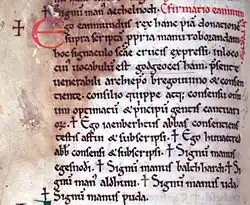 Signū man' aethelnoth. Confirmatio eanmundi
Ego eanmundus rex hanc piā donationē
supra scriptā ppria manu roborandam
hoc signaculo scāe crucis expressi. in loco
cui vocabulū est godgeoces ham. psente
venerabili archiepo bregowino & consen
tiente. consilio quippe ac consensu omni
um optimatū & principū gentis cantuari
orū. ✝ Ego iaenberhtus abbas consentiens
testis assiti & subscripsi. ✝ Ego hunred
abb consensi & subscripsi. ✝ Signū manus
egesnodi. ✝ Signū manus balchhardi. ✝ Si
gnū man' aldhuni. ✝ Signū manus ruda.
Signū manus puda.